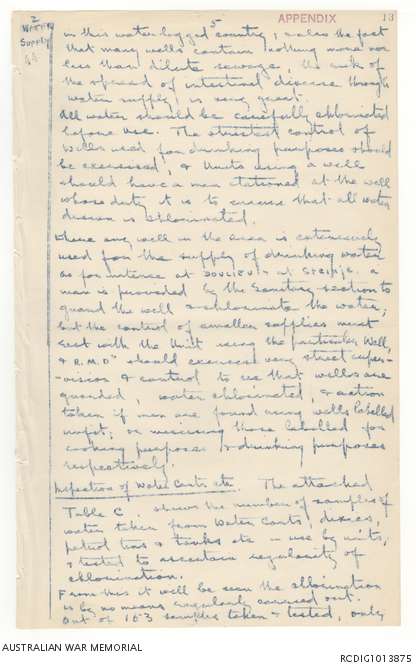 5
APPENDIX
13
2
Water
Supply
in this water logged country, & also the fact
that many wells contain nothing more nor
less than dilute sewage, the risk of
the spread of intestinal disease through
water supply is very great.
All water should be carefully chlorinated
before use. The strictest control of
Wells used for drinking purposes should
be exercised, & Units using a well
should have a man stationed at the well
whose duty it is to ensure that all water
drawn is chlorinated.
Where any well in the area is extensively
used for the supply of drinking water
as for instance at DOULIEU & at STEENJE a
man is provided by the Sanitary section to
guard the well & chlorinate the water;
but the control of smaller supplies must
rest with the Unit using the particular Well,
& R.M.O's should exercise very strict super-
-vision & control to see that wells are
guarded, water chlorinated, & action
taken if men are found using wells labelled
unfit; or misusing those labelled for
cooking purposes & drinking purposes
respectively.
Inspection of Water Carts etc. The attached
Table C shows the number of samples of
water taken from Water Carts, dixies,
petrol tins & tanks etc in use by units,
& tested to ascertain regularity of
chlorination.
From this it will be seen the chlorination
is by no means regularly carried out.
Out of 103 samples taken & tested, only
AUSTRALIAN WAR MEMORIAL
RCDIG1013875